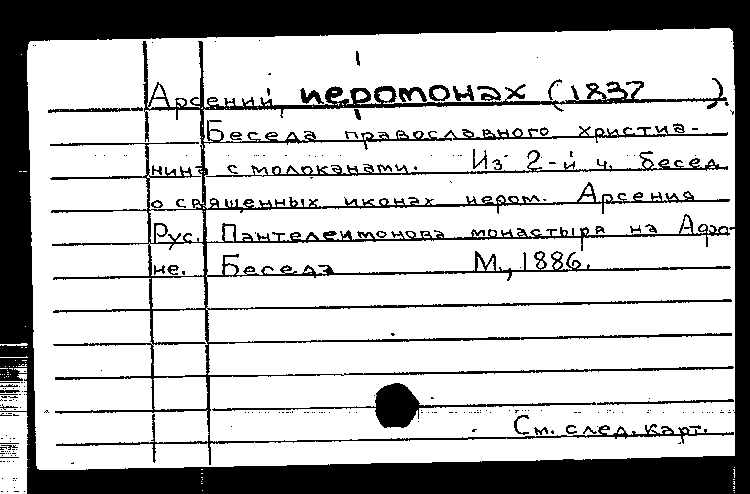 Арсений, иеромонах (1837 ).
Беседа православного христиа-
нина с молоканами. Из 2-й ч. бесед
о священных иконах иером. Арсения
Рус. Пантелеимонова монастыря на Афо-
не. Беседа М., 1886.
См. след. карт.